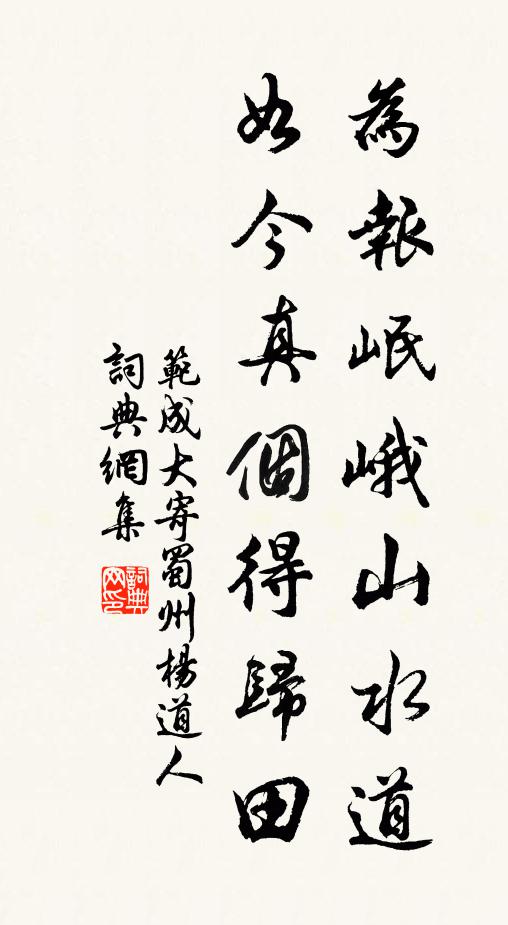 為報岷峨山水道
如今真個得歸田
範成大寄蜀州楊道人
詞典網集
詞典网印